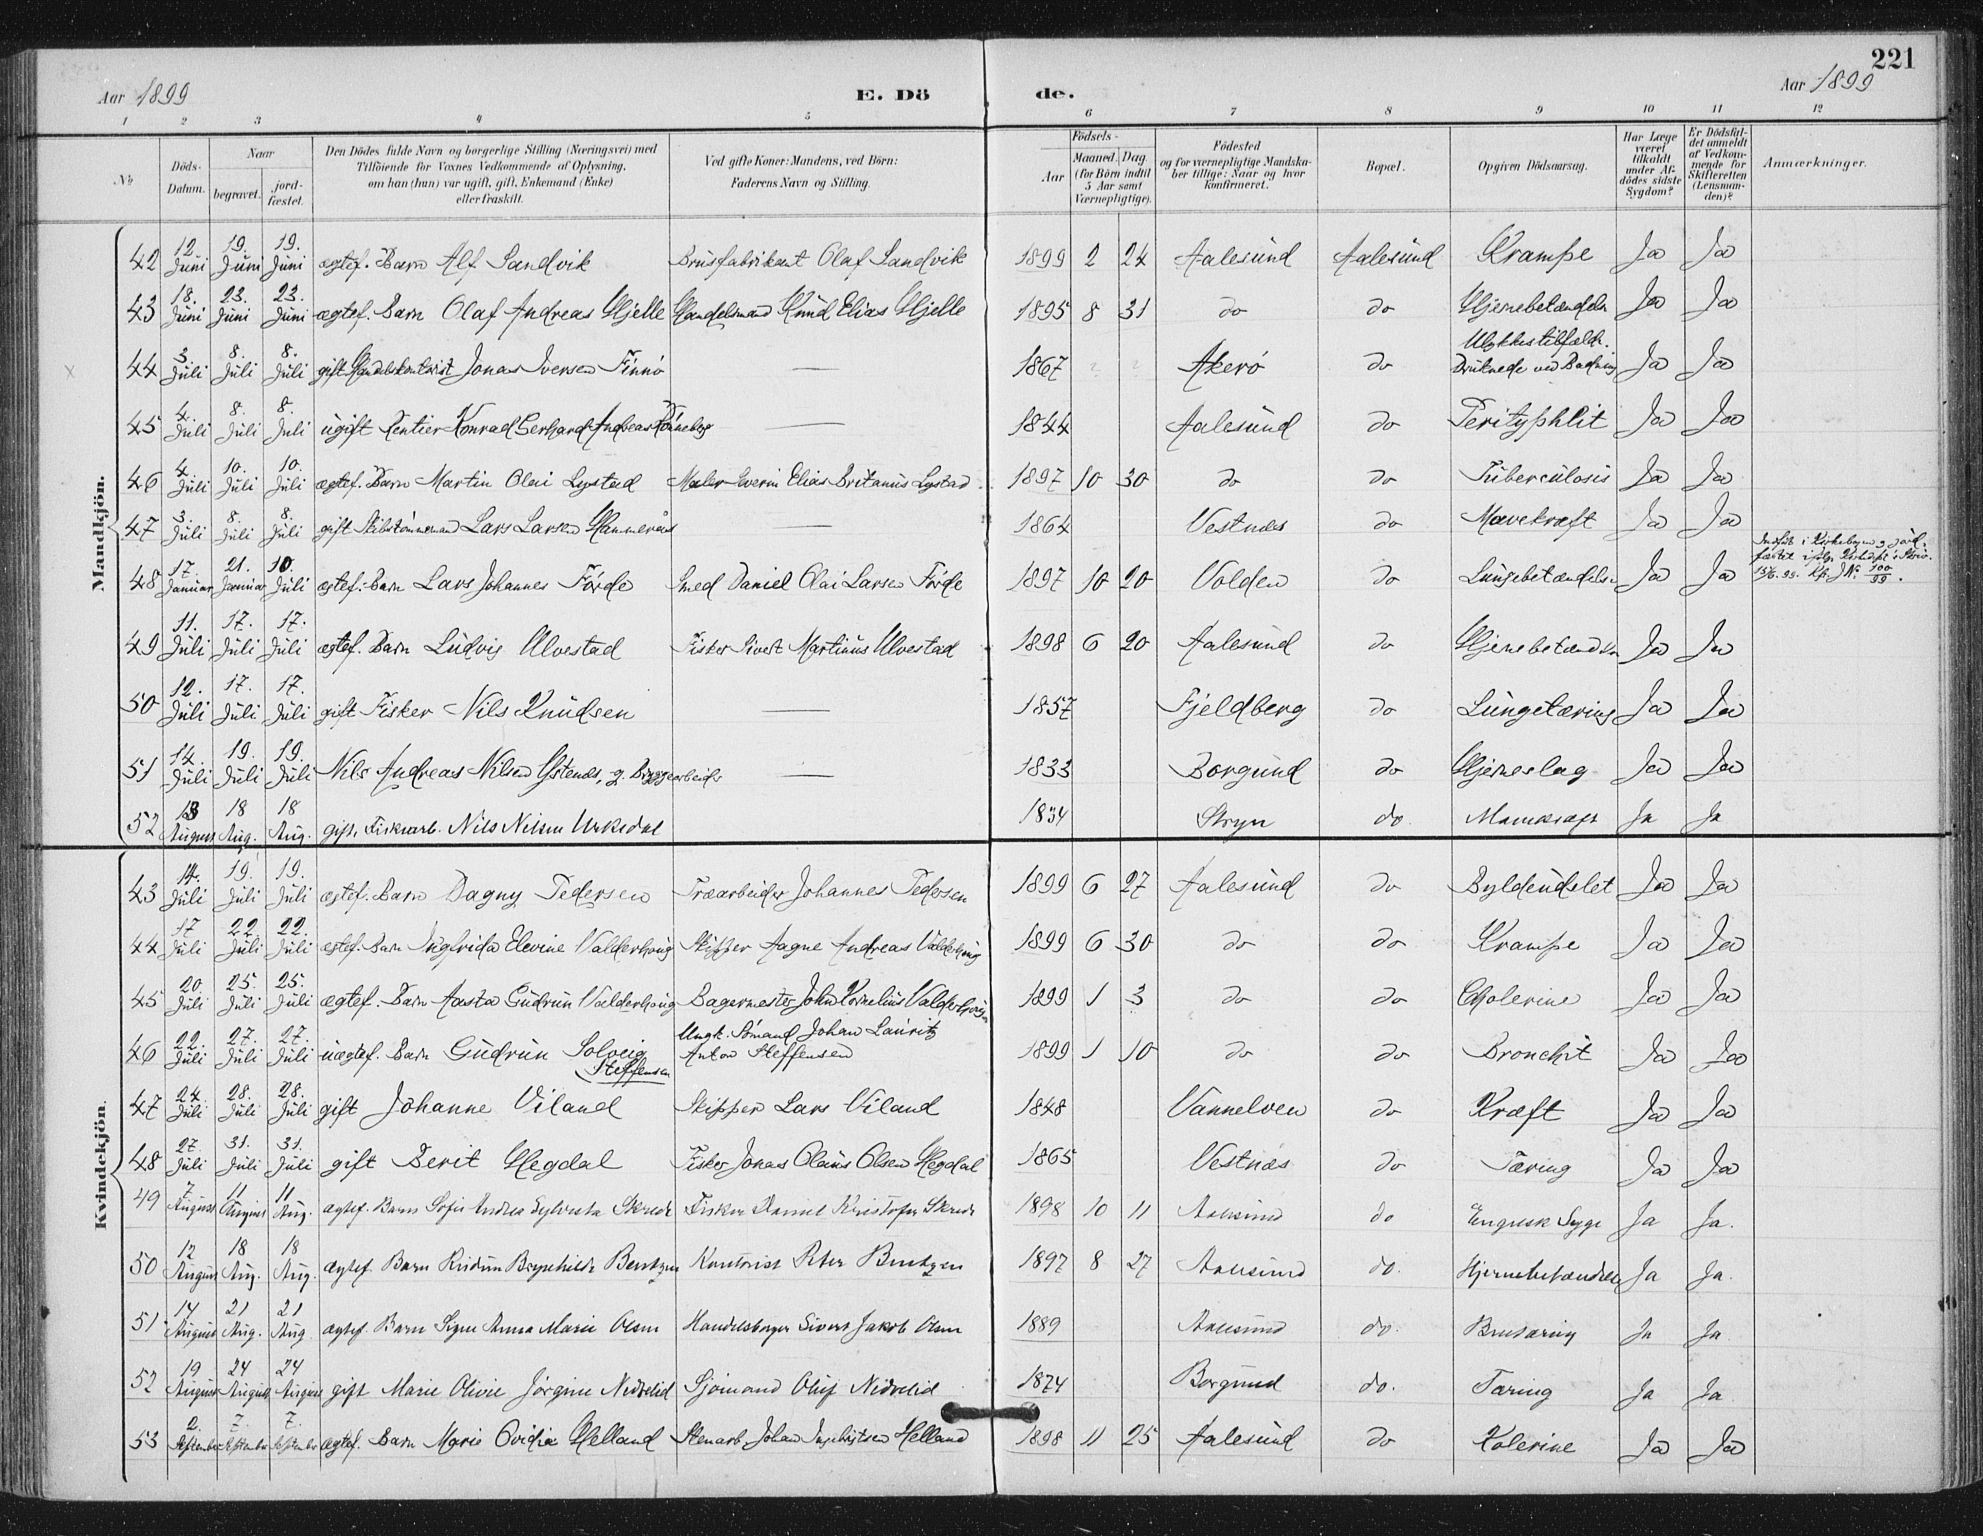 221
Aar 1899 E. Dö de. Aar 1899
1 2 3 4 5 6 7 8 9 10 11 12
№ Döds-Datum. Naar begravet. jord-fæstet. Den Dödes fulde Navn og borgerlige Stilling (Næringsvei) med Tilföiende for Voxnes Vedkommende af Oplysning, om han (hun) var ugift, gift, Enkemand (Enke) eller fraskilt. Ved gifte Koner: Mandens, ved Börn: Faderens Navn og Stilling. Födsels- Aar Maaned. Dag (for Börn indtil 5 Aar samt Værnepligtige). Födested og for værnepligtige Mandskaber tillige: Naar og hvor konfirmeret. Bopæl. Opgiven Dödsaarsag. Har Læge været tilkaldt under Afdödes sidste Sygdom? Er Dödsfaldet anmeldt af Vedkommende for Skifteretten (Lensmanden)? Anmærkninger.
Mandkjön.
42 12. Juni 19. Juni 19. Juni ægtef. Barn Alf Sandvik Brusfabrikant Olaf Sandvik 1899 2 24 Aalesund Aalesund Krampe Ja Ja
43 18. Juni 23. Juni 23. Juni ægtef. Barn Olaf Andreas Hjelle Handelsmand Knud Elias Hjelle 1895 8 31 do do Hjernebetændelse Ja Ja
44 3. Juli 8. Juli 8. Juli gift Handelskontorist Jonas Iversen Finnö — 1867 Akerö do Ulykkestilfælde. Druknede ved Badning Ja Ja
45 4. Juli 8. Juli 8. Juli ugift Rentier Konrad Gerhard Andreas Rönneberg — 1844 Aalesund do Perityphlit Ja Ja
46 4. Juli 10. Juli 10. Juli ægtef. Barn Martin Olai Lystad Maler Everin Elias Britanus Lystad 1897 10 30 do do Tuberculosis Ja Ja
47 3. Juli 8. Juli 8. Juli gift Skibstömmermand Lars Larsen Hammeraas — 1864 Vestnæs do Mavekræft Ja Ja
48 17. Januar 21. Januar 10. Juli ægtef. Barn Lars Johannes Förde Smed Daniel Olai Larsen Förde 1897 10 20 Volden do Lungebetændelse Ja Ja Indført i Kirkebogen og jord-fæstet 99. № 100/99.
49 11. Juli 17. Juli 17. Juli ægtef. Barn Ludvig Ulvestad Fisker Sivert Martinus Ulvestad 1898 6 20 Aalesund do Hjernebetændelse Ja Ja
50 12. Juli 17. Juli 17. Juli gift Fisker Nils Knudsen — 1857 Fjeldberg do Lungetæring Ja Ja
51 14. Juli 19. Juli 19. Juli Nils Andreas Nilsen Ystenes, g. Bryggearbeider — 1833 Borgund do Hjerneslag Ja Ja
52 13 August 18 Aug. 18 Aug. gift, Fiskearb. Nils Nilsen Urkedal 1834 Stryn do. Mavekræft Ja Ja
Kvindekjön.
43 14. Juli 19. Juli 19. Juli ægtef. Barn Dagny Pedersen Træarbeider Johannes Pedersen 1899 6 27 Aalesund do Byldeudslet Ja Ja
44 17 Juli 22. Juli 22. Juli ægtef. Barn Ingfrida Elevine Valderhaug Skipper Aagne Andreas Valderhaug 1899 6 30 do do Krampe Ja Ja
45 20. Juli 25. Juli 25. Juli ægtef. Barn Aasta Gudrun Valderhaug Bagermester John Kornelius Valderhaug 1899 1 3 do do Cholerine Ja Ja
46 22. Juli 27. Juli 27. Juli uægtef. Barn Gudrun Solveig Steffensen Ungk. Sömand Johan Lauritz Anton Steffensen 1899 1 10 do do Bronchit Ja Ja
47 24. Juli 28. Juli 28. Juli gift Johanne Viland Skipper Lars Viland 1848 Vannelven do Kræft Ja Ja
48 27. Juli 31. Juli 31. Juli gift Berit Hegdal Fisker Jonas Olaus Olsen Hegdal 1865 Vestnæs do Tæring Ja Ja
49 7 August 11 August 11 Aug. ægtef. Barn Sofie Andrea Sylvesta Skrede Fisker Daniel Kristofer Skrede 1898 10 11 Aalesund do Engelsk Syge Ja Ja.
50 12 August 18 Aug. 18 Aug. ægtef. Barn Brynhilde Bentzen Kontorist Peter Bentzen 1897 8 27 Aalesund do. Hjernebetændelse Ja Ja.
51 14 August 21 Aug. 21 Aug ægtef. Barn Signe Anna Marie Olsen Handelsborger Sivert Jakob Olsen 1889 Aalesund do. Brusæring Ja Ja
52 19 August 24 August 24 August gift Marie Olivie Jörgine Nedrelid Sjömand Oluf Nedrelid 1874 Borgund do. Tæring Ja Ja
53 2. September 7. September 7. September ægtef. Barn Marie Ovidia Helland Stenarb. Johan Helland 1898 11 25 Aalesund do Kolerine Ja Ja